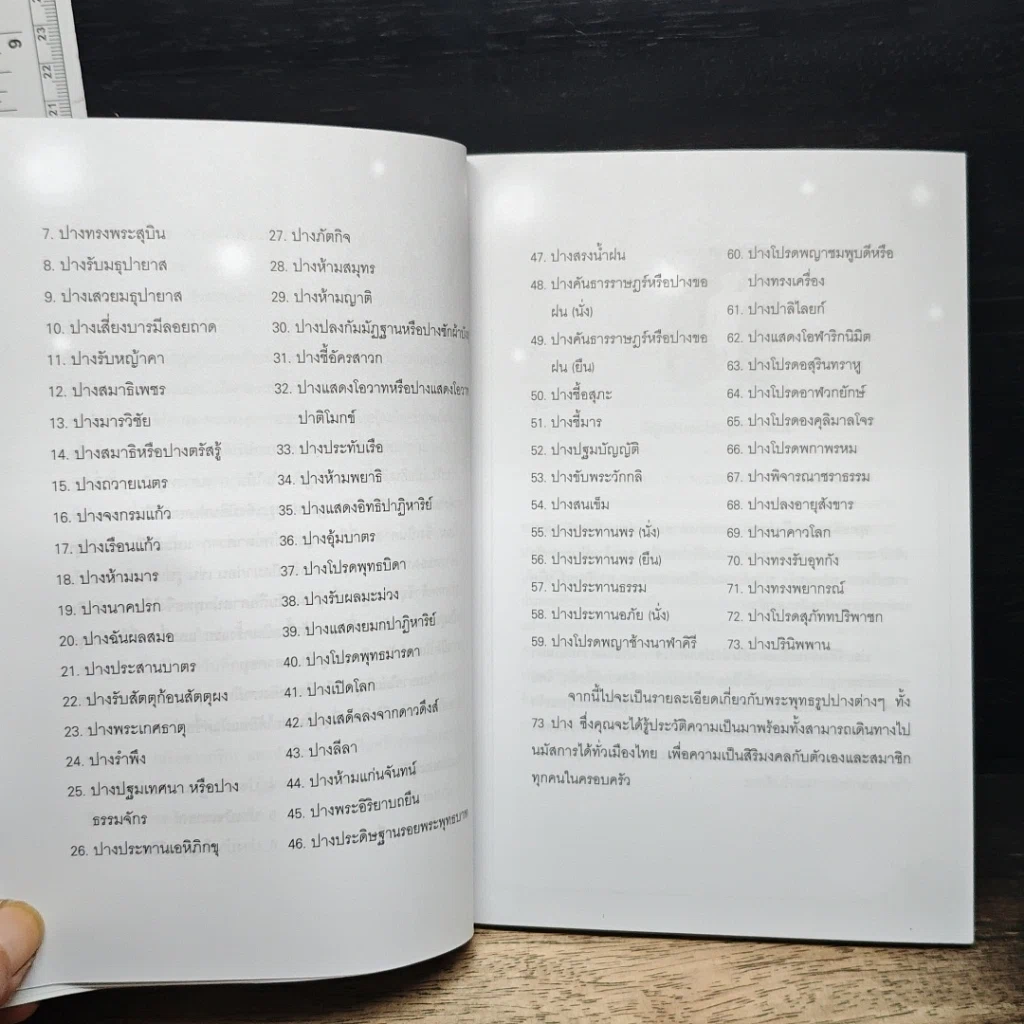 9
23
22
21
7. ปางทรงพระสุบิน
8. ปางรับมธุปายาส
9. ปางเสวยมธุปายาส
10. ปางเสี่ยงบารมีลอยถาด
11. ปางรับหญ้าคา
12. ปางสมาธิเพชร
13. ปางมารวิชัย
14. ปางสมาธิหรือปางตรัสรู้
15. ปางถวายเนตร
16. ปางจงกรมแก้ว
17. ปางเรือนแก้ว
18. ปางห้ามมาร
19. ปางนาคปรก
20. ปางฉันผลสมอ
21. ปางประสานบาตร
22. ปางรับสัตตุก้อนสัตตุผง
23. ปางพระเกศธาตุ
24. ปางรำพึง
25. ปางปฐมเทศนา หรือปาง
ธรรมจักร
26. ปางประทานเอหิภิกขุ
27. ปางภัตกิจ
28. ปางห้ามสมุทร
29. ปางห้ามญาติ
30. ปางปลงกัมมัฏฐานหรือปางชักผ้า
31. ปางชี้อัครสาวก
32. ปางแสดงโอวาทหรือปางแสดงโอวาท
ปาติโมกข์
33. ปางประทับเรือ
34. ปางห้ามพยาธิ
35. ปางแสดงอิทธิปาฏิหาริย์
36. ปางอุ้มบาตร
37. ปางโปรดพุทธบิดา
38. ปางรับผลมะม่วง
39. ปางแสดงยมกปาฏิหาริย์
40. ปางโปรดพุทธมารดา
41. ปางเปิดโลก
42. ปางเสด็จลงจากดาวดึงส์
43. ปางลีลา
44. ปางห้ามแก่นจันทน์
45. ปางพระอิริยาบถยืน
46. ปางประดิษฐานรอยพระพุทธบาท
47. ปางสรงน้ำฝน
48. ปางคันธารราษฎร์หรือปางขอ
ฝน (นั่ง)
49. ปางคันธารราษฎร์หรือปางขอ
ฝน (ยืน)
50. ปางชี้อสุภะ
51. ปางชี้มาร
52. ปางปฐมบัญญัติ
53. ปางขับพระวักกลิ
54. ปางสนเข็ม
55. ปางประทานพร (นั่ง)
56. ปางประทานพร (ยืน)
57. ปางประทานธรรม
58. ปางประทานอภัย (นั่ง)
59. ปางโปรดพญาช้างนาฬาคิรี
60. ปางโปรดพญาชมพูบดีหรือ
ปางทรงเครื่อง
61. ปางปาลิไลยก์
62. ปางแสดงโอฬาริกนิมิต
63. ปางโปรดอสุรินทราหู
64. ปางโปรดอาฬวกยักษ์
65. ปางโปรดองคุลิมาลโจร
66. ปางโปรดพกาพรหม
67. ปางพิจารณาชราธรรม
68. ปางปลงอายุสังขาร
69. ปางนาคาวโลก
70. ปางทรงรับอุทกัง
71. ปางทรงพยากรณ์
72. ปางโปรดสุภัททปริพาชก
73. ปางปรินิพพาน
จากนี้ไปจะเป็นรายละเอียดเกี่ยวกับพระพุทธรูปปางต่างๆ ทั้ง
73 ปาง ซึ่งคุณจะได้รู้ประวัติความเป็นมาพร้อมทั้งสามารถเดินทางไป
นมัสการได้ทั่วเมืองไทย เพื่อความเป็นสิริมงคลกับตัวเองและสมาชิก
ทุกคนในครอบครัว